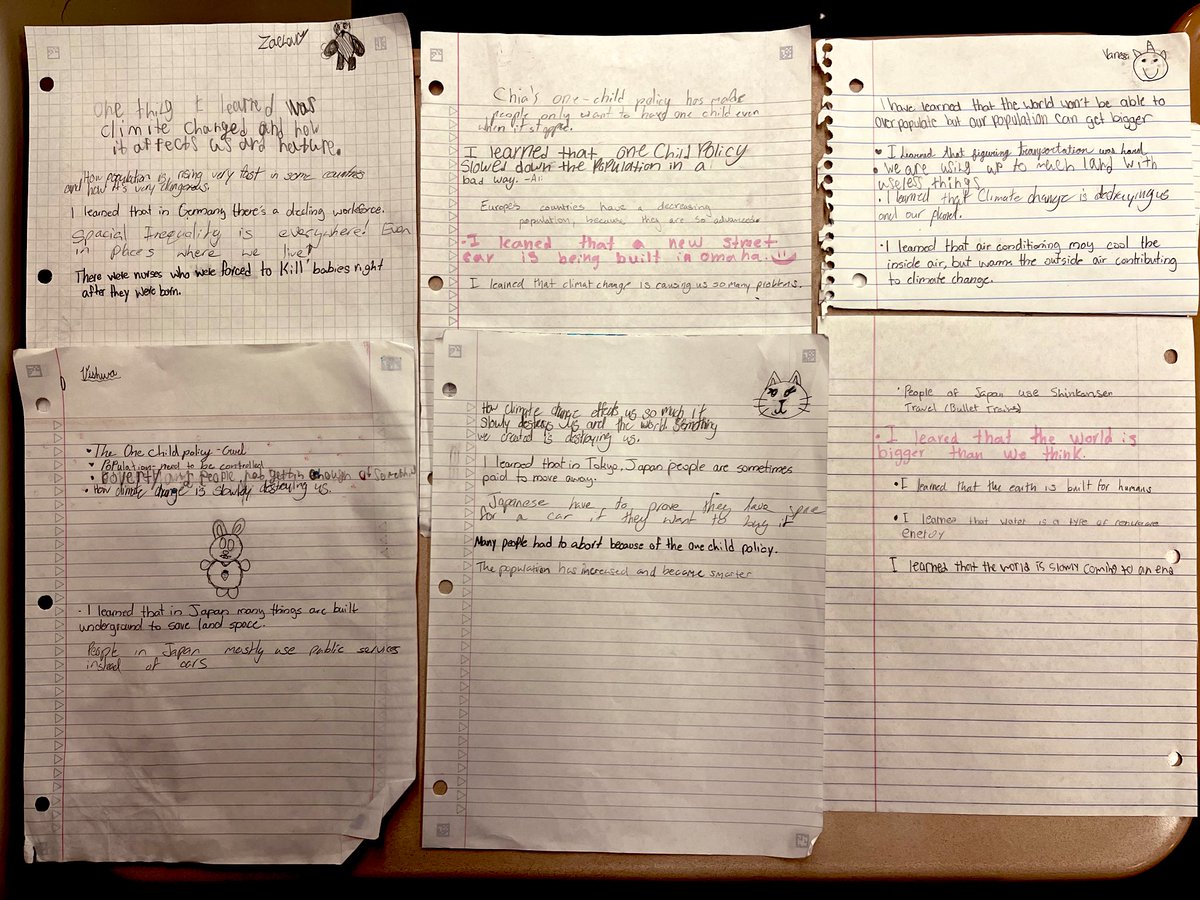 Zachary
one thing I learned was
climite changed and how
it affects us and nature.
How population is rising very fast in some countries
and how it's very dangorous.
I learned that in Germany there's a decling workforce.
Spacial Inequality is everywhere! Even
in places where we live!
There were nurses who were forced to kill babies right
after they were born.
Chia's one-child policy has made
people only want to have one child even
when it stoppe.
I learned that one Child Policy
slowed down the population in a
bad way. -Ari
Europe's countries have a decreasing
population, because, they are so advanced
• I leaned that a new street
car is being built in omaha.
I learned that climat change is causing us so many problems.
Vanessa
I have learned that the world won't be able to
overpopulate but our population can get bigger
• I learned that figuring transportation was hard
• we are using up to much land with
useless things
• I learned that Climate change is
us
and our planet.
• I learned that air conditioning may cool the
inside air, but warms the outside air contributing
to climate change.
Vishwa
• The One child policy -
• Population- need to be controlled
• poverty and people not gettin enough of
• How climate change is slowly destroying us.
• I learned that in Japan many things are built
underground to save land space.
People in Japan mostly use public services
instead of cars
How climate change effects us so much it
slowly destroys us and the world something
we created is destroying us.
I learned that in Tokyo, Japan people are sometimes
paid to move away.
Japanese have to prove they have space
for a car if they want to buy it
Many people had to abort because of the one child policy.
The population has increased and became smarter
• People of Japan use Shinkansen
Travel (Bullet Trains)
• I leared that the world is
bigger than we think.
• I learned that the earth is built for humans
• I learned that water is a type of
energy
I learned that the world is slowly coming to an end